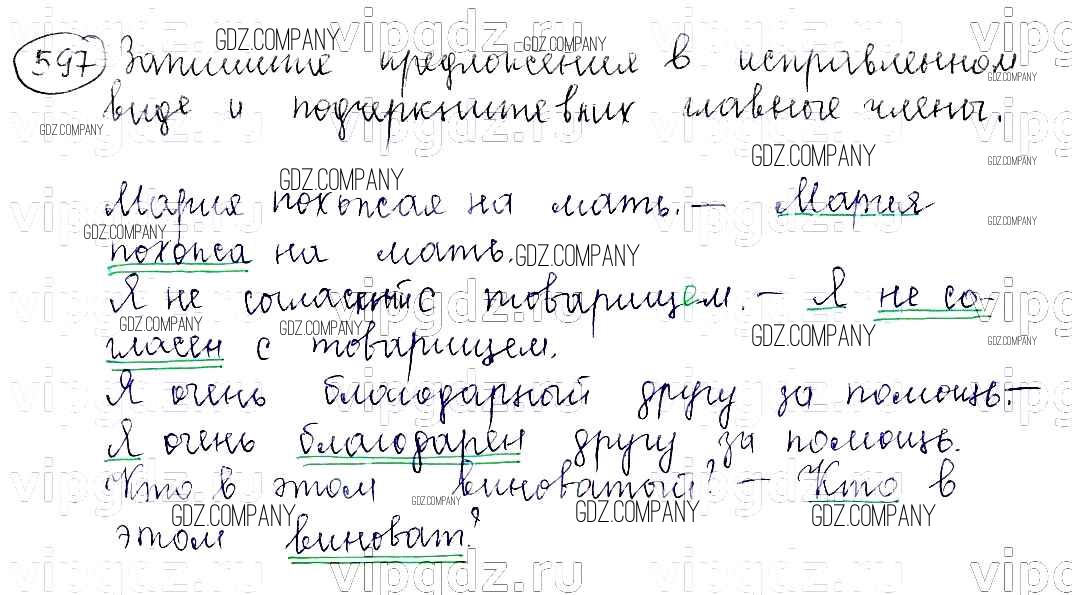 597 Запишите предложения в исправленном
виде и подчеркните в них главные члены.
Мария похожая на мать. – Мария
похожа на мать.
Я не согласный с товарищем. – Я не со-
гласен с товарищем.
Я очень благодарный другу за помощь. –
Я очень благодарен другу за помощь.
Кто в этом виноватый? – Кто в
этом виноват?